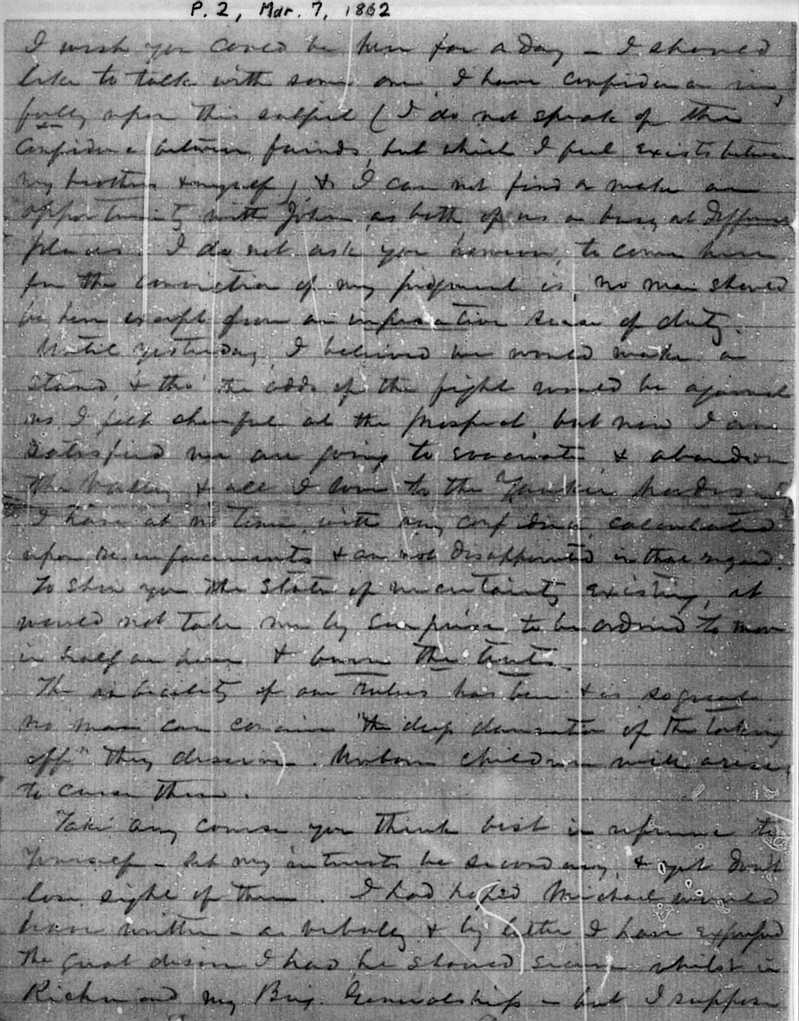 P. 2, Mar. 7, 1862
I wish you could be here for a day – I should
like to talk with some one, I have confidence in,
fully upon this subject ( I do not speak of the
confidence between friends, but which I feel exists between
my brothers & myself) & I can not find or make an
opportunity with John, as both of us are busy at different
places. I do not ask you however, to come here
for the conviction of my judgment is, no man should
be here except from an imperative sense of duty.
Until yesterday, I believed we would make a
stand, & tho' the odds of the fight would be against
us I felt cheerful at the prospect, but now I am
satisfied we are going to evacuate & abandon
the Valley & all I love to the Yankee
I have at no time, with any confidence, calculated
upon reinforcements & am not disappointed in that regard.
To show you the state of uncertainty existing, it
would not take me by surprise to be ordered to move
in half an hour & burn the tents.
The imbecility of our rulers has been & is so great
no man can conceive "the deep damnation of the taking
off" they deserve. Unborn children will arise
to curse them.
Take any course you think best in reference to
yourself – let my interests be secondary, & yet don't
lose sight of them. I had hoped Michael would
have written – as verbally & by letter I have expressed
the great desire I had, he should secure whilst in
Richmond my Brig. Generalship – but I suppose